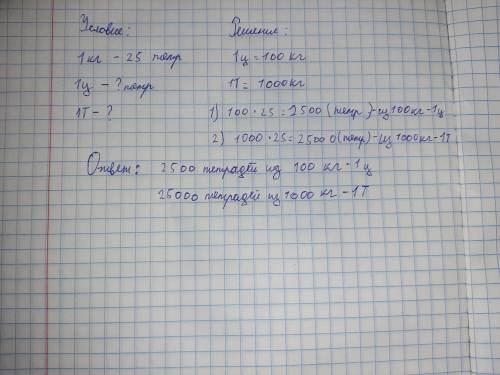 Условие: Решение:
1кг - 25 тетр 1ц = 100 кг
1ц - ? тетр 1Т = 1000кг
1Т - ? 1) 100 · 25 = 2500 (тетр) - из 100кг - 1ц
2) 1000 · 25 = 25000 (тетр) - из 1000кг - 1Т
Ответ: 2500 тетрадей из 100 кг - 1ц
25000 тетрадей из 1000 кг - 1Т